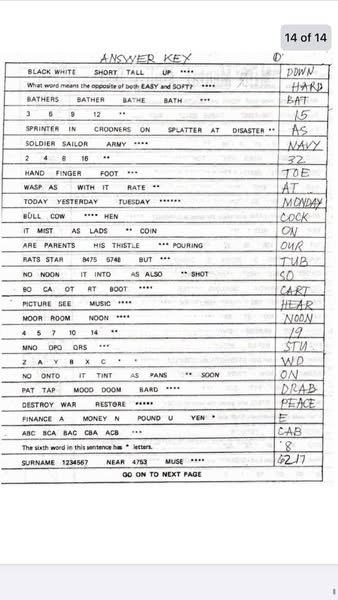 14 of 14
ANSWER KEY
BLACK WHITE SHORT TALL UP **** DOWN
What word means the opposite of both EASY and SOFT? **** HARD
BATHERS BATHER BATHE BATH *** BAT
3 6 9 12 ** 15
SPRINTER IN CROONERS ON SPLATTER AT DISASTER ** AS
SOLDIER SAILOR ARMY **** NAVY
2 4 8 16 ** 32
HAND FINGER FOOT *** TOE
WASP AS WITH IT RATE ** AT
TODAY YESTERDAY TUESDAY ****** MONDAY
BULL COW **** HEN COCK
IT MIST AS LADS ** COIN ON
ARE PARENTS HIS THISTLE *** POURING OUR
RATS STAR 8475 5748 BUT *** TUB
NO NOON IT INTO AS ALSO ** SHOT SO
BO CA OT RT BOOT **** CART
PICTURE SEE MUSIC **** HEAR
MOOR ROOM NOON **** NOON
4 5 7 10 14 ** 19
MNO OPQ QRS *** STU
Z A Y B X C * * WD
NO ONTO IT TINT AS PANS ** SOON ON
PAT TAP MOOD DOOM BARD **** DRAB
DESTROY WAR RESTORE ***** PEACE
FINANCE A MONEY N POUND U YEN * E
ABC BCA BAC CBA ACB *** CAB
The sixth word in this sentence has * letters. 8
SURNAME 1234567 NEAR 4753 MUSE **** 6217
GO ON TO NEXT PAGE